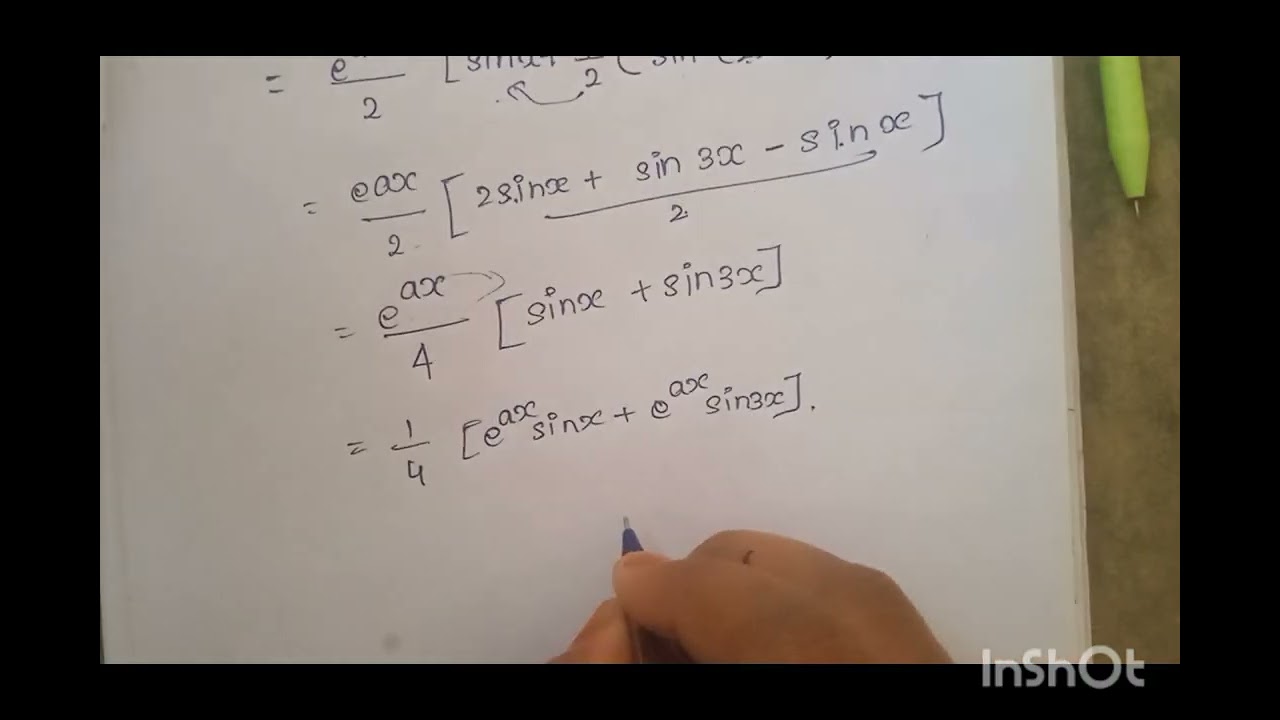 = e / 2 [ sin x + 1/2 ( sin
= e^ax / 2 [ 2 sin x + sin 3x - sin x / 2 ]
= e^ax / 4 [ sin x + sin 3x ]
= 1/4 [ e^ax sin x + e^ax sin 3x ] .
InShOt